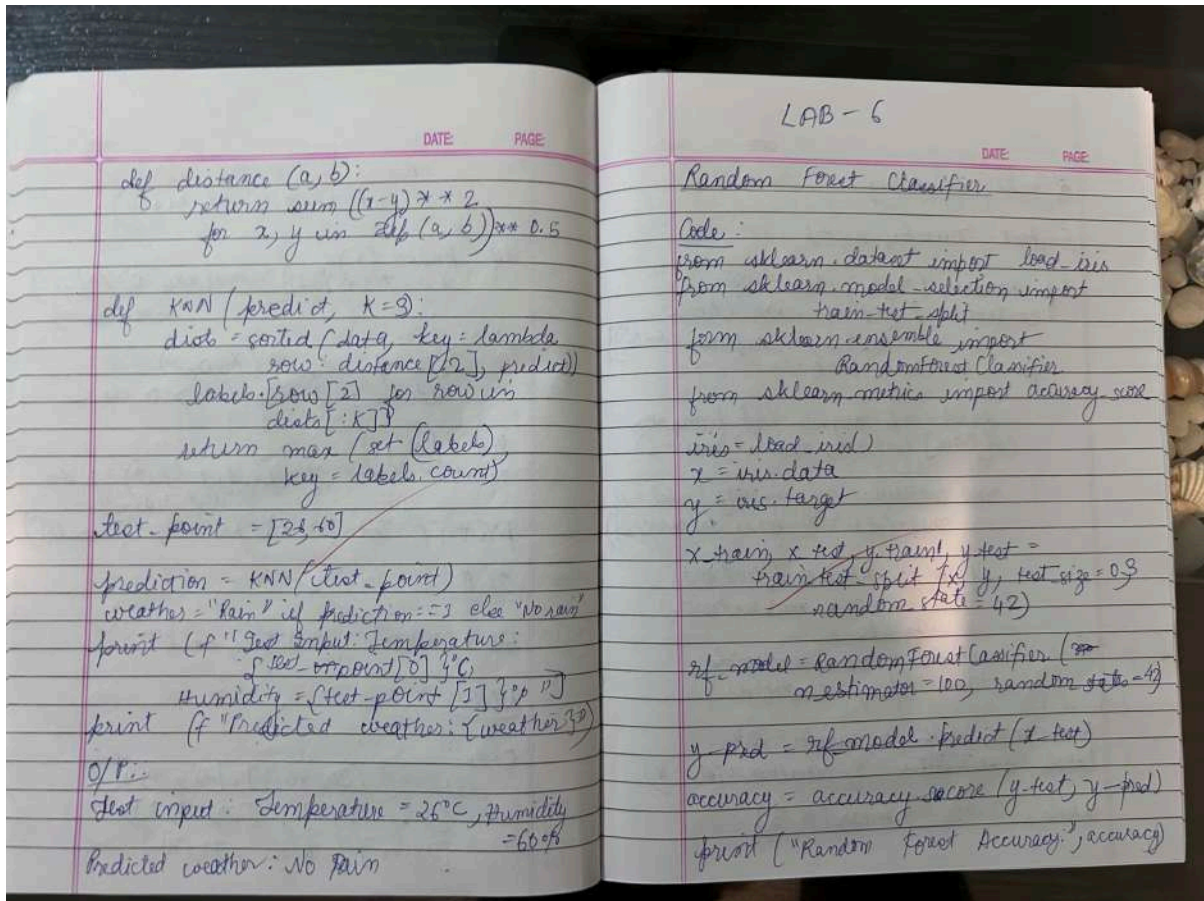 DATE: PAGE:
def distance (a, b):
return sum ((x-y) ** 2
for x, y in zip (a, b)) ** 0.5
def KNN (predict, K=3):
dists = sorted (data, key = lambda
row: distance [:2], predict))
labels = [row [2] for row in
dists [:K]]
return max (set (labels),
key = labels.count)
test_point = [26, 60]
prediction = KNN (test_point)
weather = "Rain" if prediction == 1 else "No rain"
print (f "Test Input: Temperature:
{test_point[0]}°C,
Humidity = {test_point [1]}% ")
print (f "Predicted weather: {weather}")
O/P:
Test input: Temperature = 26°C, Humidity
= 60%
Predicted weather: No Rain
LAB - 6
DATE: PAGE:
Random Forest Classifier
Code:
from sklearn.dataset import load_iris
from sklearn.model_selection import
train_test_split
form sklearn.ensemble import
RandomForest Classifier
from sklearn.metrics import accuracy_score
iris = load_iris()
x = iris.data
y = iris.target
x_train, x_test, y_train, y_test =
train test_split (x, y, test_size = 0.3
random state = 42)
rf_model = RandomForestClassifier (
n estimator = 100, random state = 42)
y_pred = rf_model.predict (x_test)
accuracy = accuracy score (y_test, y_pred)
print ("Random Forest Accuracy:", accuracy)